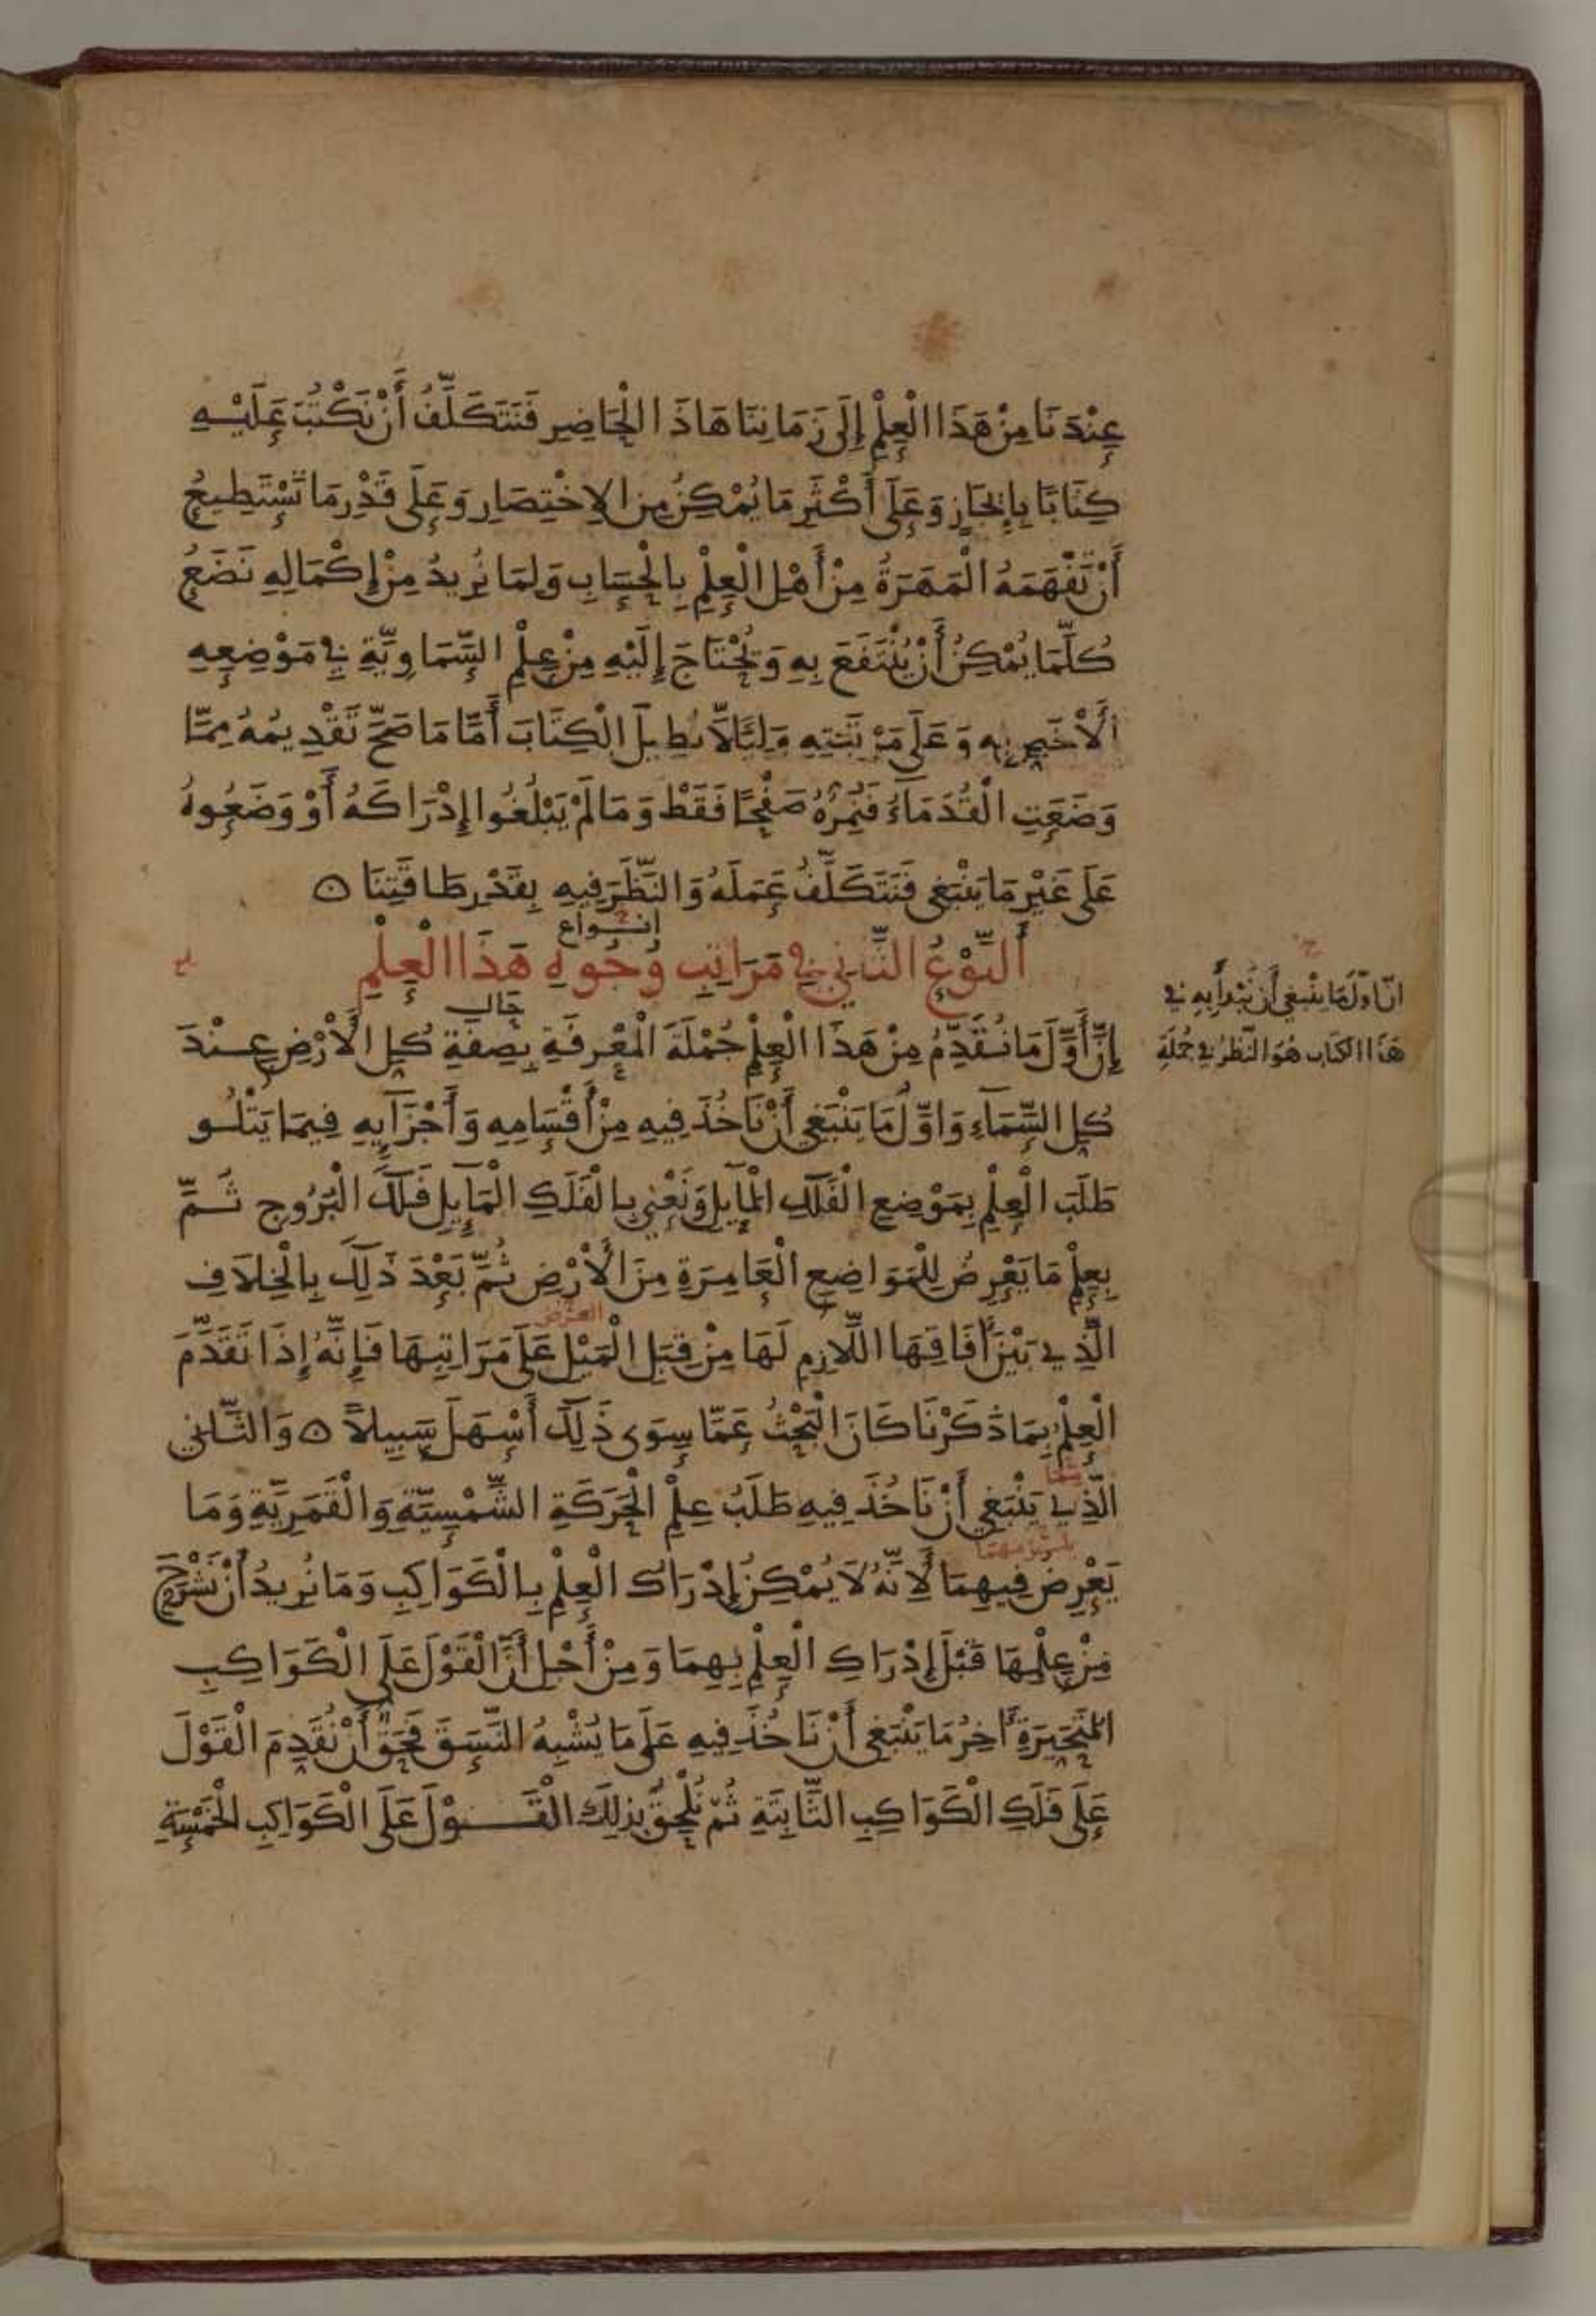 عِنْدَنَا مِنْ هَذَا الْعِلْمِ إِلَى زَمَانِنَا هَاذَا الْحَاضِرِ فَنَتَكَلَّفُ أَنْ نَكْتُبَ عَلَيْهِ
كِتَابًا بِإِيْجَازٍ وَعَلَى أَكْثَرِ مَا يُمْكِنُ مِن الِاخْتِصَارِ وَعَلَى قَدْرِ مَا تَسْتَطِيعُ
أَنْ تَفْهَمَهُ الْمَهَرَةُ مِنْ أَهْلِ الْعِلْمِ بِالْحِسَابِ وَلِمَا نُرِيدُ مِنْ إِكْمَالِهِ نَضَعُ
كُلَّمَا يُمْكِنُ أَنْ يُنْتَفَعَ بِهِ وَيُحْتَاجَ إِلَيْهِ مِنْ عِلْمِ السَّمَاوِيَّةِ فِي مَوْضِعِهِ
الْأَخَصِّ بِهِ وَعَلَى مَرْتَبَتِهِ وَلِئَلَّا نُطِيلَ الْكِتَابَ أَمَّا مَا صَحَّ تَقْدِيمُهُ مِمَّا
وَضَعَتِ الْقُدَمَاءُ فَنُمِرُّهُ صَفْحًا فَقَطْ وَمَا لَمْ يَبْلُغُوا إِدْرَاكَهُ أَوْ وَضَعُوهُ
عَلَى غَيْرِ مَا يَنْبَغِي فَنَتَكَلَّفُ عَمَلَهُ وَالنَّظَرَ فِيهِ بِقَدْرِ طَاقَتِنَا ۞
أنـواع
أَلنَّوْعُ الثَّانِي فِي مَرَاتِبِ وُجُوهِ هَذَا الْعِلْمِ
حال
انّ اوّلَ مَا يَنْبَغِي أَن نَبْدأَ بِهِ فِي
هَذَا الكتاب هُوَ النّظَرُ فِي جُملَةِ
إِنَّ أَوَّلَ مَا نُقَدِّمُ مِنْ هَذَا الْعِلْمِ جُمْلَةَ الْمَعْرِفَةِ بِصِفَةِ كُلِ الْأَرْضِ عِنْدَ
كُلِ السَّمَآءِ وَاوَّلُ مَا يَنْبَغِي أَنْ نَاخُذَ فِيهِ مِنْ أَقْسَامِهِ وَأَجْزَآيِهِ فِيمَا يَتْلُو
طَلَبَ الْعِلْمِ بِمَوْضِعِ الْفَلَكِ الْمَآيِلِ وَنَعْنِي بِالْفَلَكِ الْمَآيِلِ فَلَكَ الْبُرُوجِ ثُمَّ
بِعِلْمِ مَا يَعْرِضُ لِلْمَوَاضِعِ الْعَامِرَةِ مِنَ الْأَرْضِ ثُمَّ بَعْدَ ذَلِكَ بِالْخِلَافِ
العَرْض
الَّذِي بَيْنَ أَفَاقِهَا اللَّازِمِ لَهَا مِنْ قِبَلِ الْمَيْلِ عَلَى مَرَاتِبِهَا فَإِنَّهُ إِذَا تَقَدَّمَ
الْعِلْمُ بِمَا ذَكَرْنَا كَانَ الْبَحْثُ عَمَّا سِوَى ذَلِكَ أَسْهَلَ سَبِيلاً ۞ وَالثَّانِي
الَّذِي يَنْبَغِي أَنْ نَاخُذَ فِيهِ طَلَبُ عِلْمِ الْحَرَكَةِ الشَّمْسِيَّةِ وَالْقَمَرِيَّةِ وَمَا
يلزمهما
يَعْرِضُ فِيهِمَا لِأَنَّهُ لَا يُمْكِنُ إِدْرَاكُ الْعِلْمِ بِالْكَوَاكِبِ وَمَا نُرِيدُ أَنْ نَشْرَحَ
مِنْ عِلْمِهَا قَبْلَ إِدْرَاكِ الْعِلْمِ بِهِمَا وَمِنْ أَجْلِ أَنَّ الْقَوْلَ عَلَى الْكَوَاكِبِ
الْمُتَحَيِّرَةِ أَخِرُ مَا يَنْبَغِي أَنْ نَاخُذَ فِيهِ عَلَى مَا يُشْبِهُ النَّسَقَ فَحَقٌّ أَنْ نُقَدِّمَ الْقَوْلَ
عَلَى فَلَكِ الْكَوَاكِبِ الثَّابِتَةِ ثُمّ نُلْحِقُ بِذَلِكَ الْقَـوْلَ عَلَى الْكَوَاكِبِ الْخَمْسَةِ